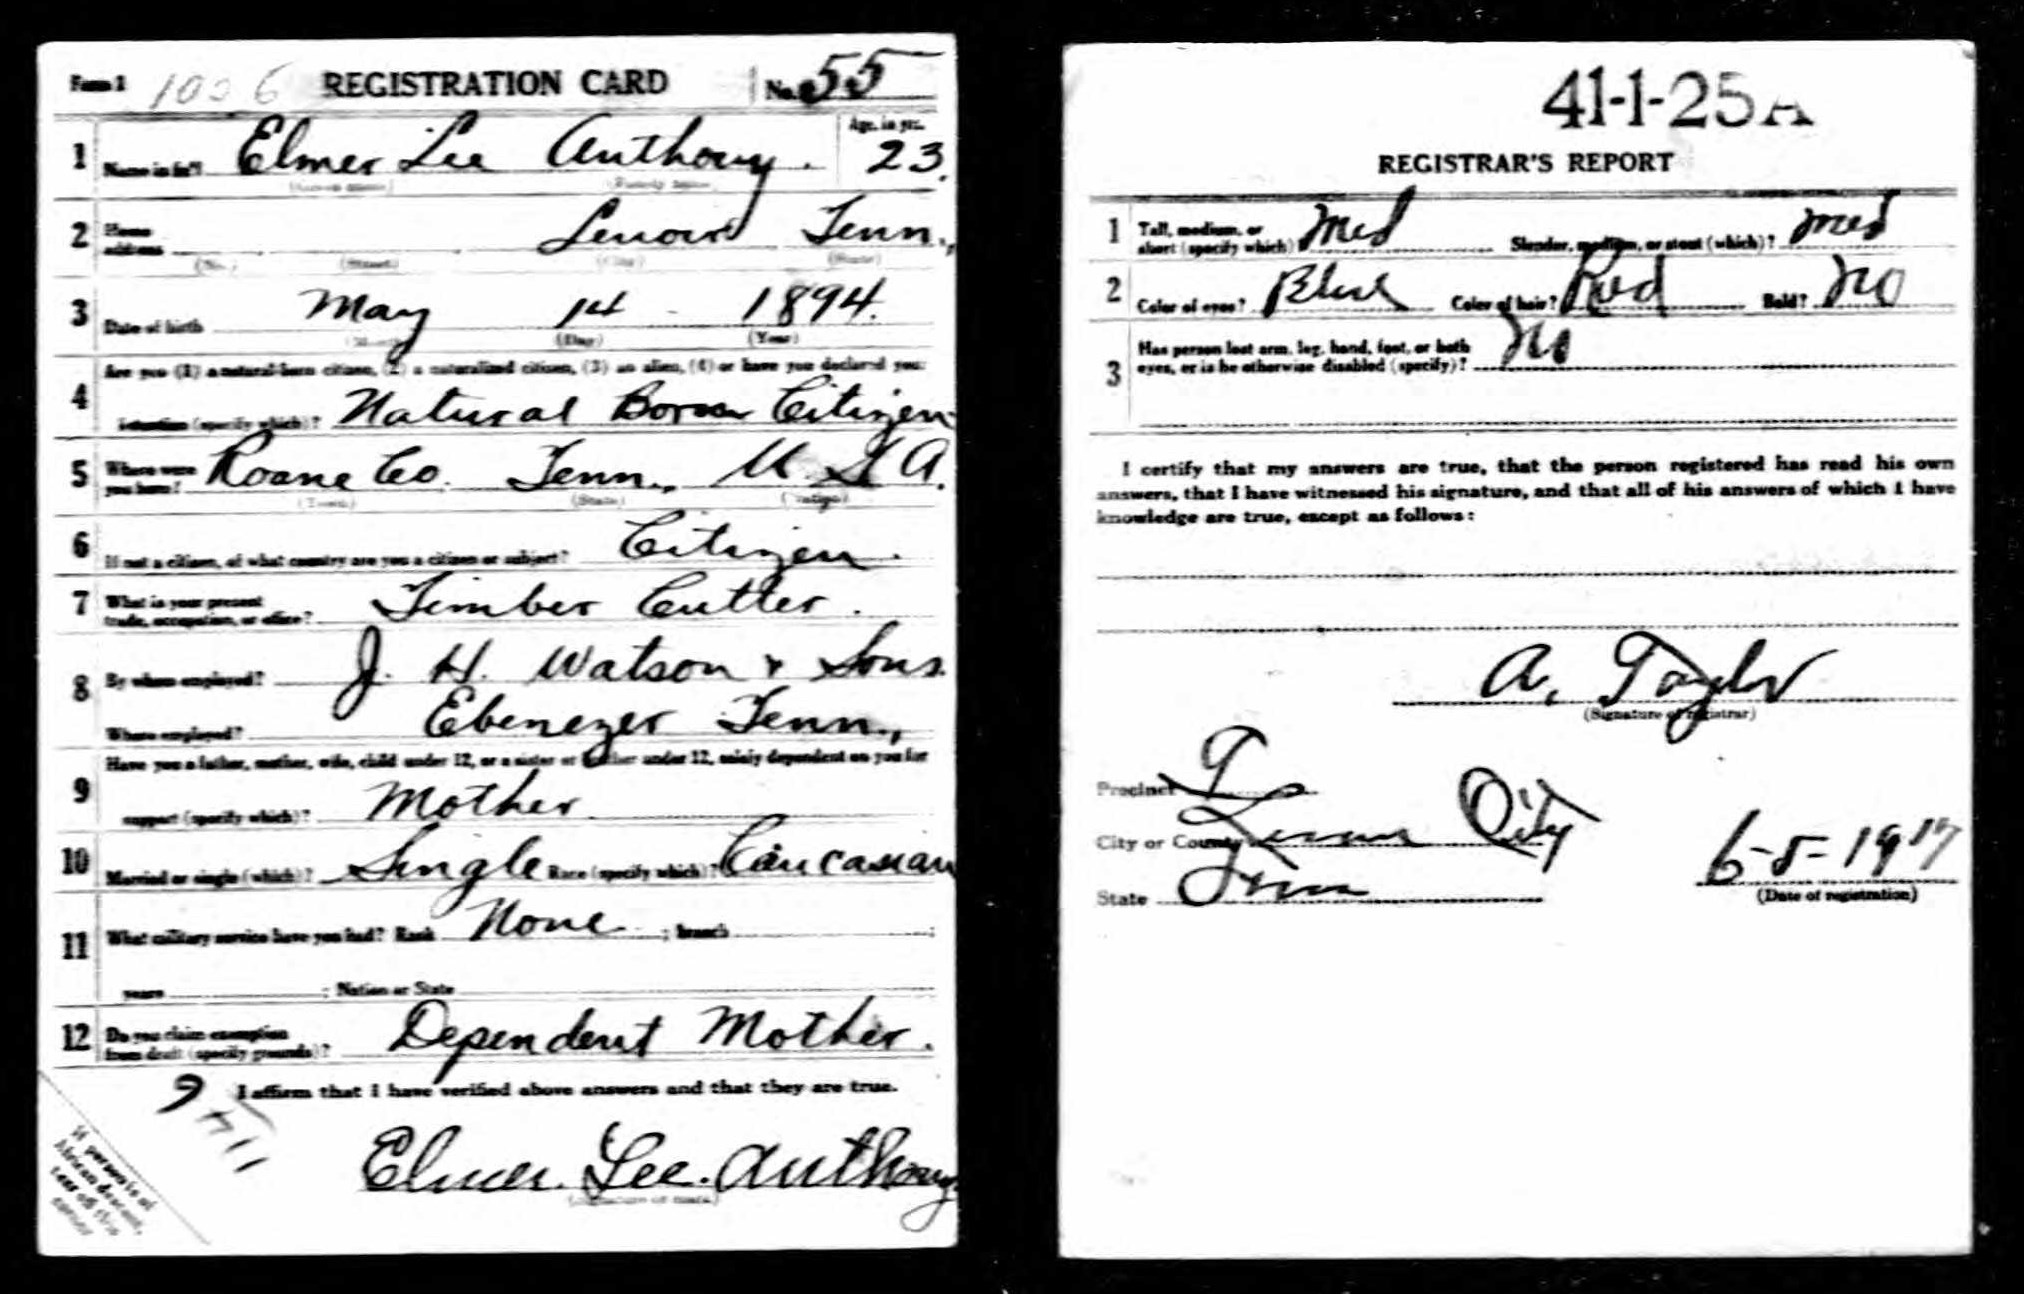 Form 1 1006 REGISTRATION CARD No. 55
1 Name in full Elmer Lee Anthony. Age, in yrs. 23.
(Given name) (Family name)
2 Home address Lenoir Tenn.,
(No.) (Street) (City) (State)
3 Date of birth May 14 1894.
(Month) (Day) (Year)
4 Are you (1) a natural-born citizen, (2) a naturalized citizen, (3) an alien, (4) or have you declared your
intention (specify which)? Natural Born Citizen
5 Where were you born? Roane Co. Tenn., U S A.
(Town) (State) (Nation)
6 If not a citizen, of what country are you a citizen or subject? Citizen.
7 What is your present trade, occupation, or office? Timber Cutter.
8 By whom employed? J. H. Watson & Sons.
Where employed? Ebenezer Tenn.,
9 Have you a father, mother, wife, child under 12, or a sister or brother under 12, solely dependent on you for
support (specify which)? Mother
10 Married or single (which)? Single Race (specify which)? Caucasian
11 What military service have you had? Rank None ; branch ;
years ; Nation or State
12 Do you claim exemption from draft (specify grounds)? Dependent Mother.
I affirm that I have verified above answers and that they are true.
Elmer. Lee. Anthony
(Signature or mark)
If person is of
African descent,
tear off this
corner
41-1-25 A
REGISTRAR'S REPORT
1 Tall, medium, or short (specify which)? Med Slender, medium, or stout (which)? Med
2 Color of eyes? Blue Color of hair? Red Bald? No
3 Has person lost arm, leg, hand, foot, or both
eyes, or is he otherwise disabled (specify)? No
I certify that my answers are true, that the person registered has read his own
answers, that I have witnessed his signature, and that all of his answers of which I have
knowledge are true, except as follows:
A. Taylor
(Signature of registrar)
Precinct
City or County City
State Tenn
6-5-1917
(Date of registration)